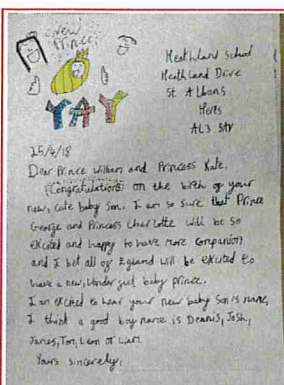 New
Prince
YAY
Heathland School
Heathland Drive
St Albans
Herts
AL3 5AY
25/4/18
Dear Prince William and Princess Kate.
Congratulations on the birth of your
new, cute baby son. I am so sure that Prince
George and Princess Charlotte will be so
excited and happy to have more companion
and I bet all of Egland will be excited to
have a new, wonderful baby prince.
I am excited to hear your new baby son's name,
I think a good boy name is Dennis, Josh,
James, Tom, Leon or Liam.
Yours sincerely,